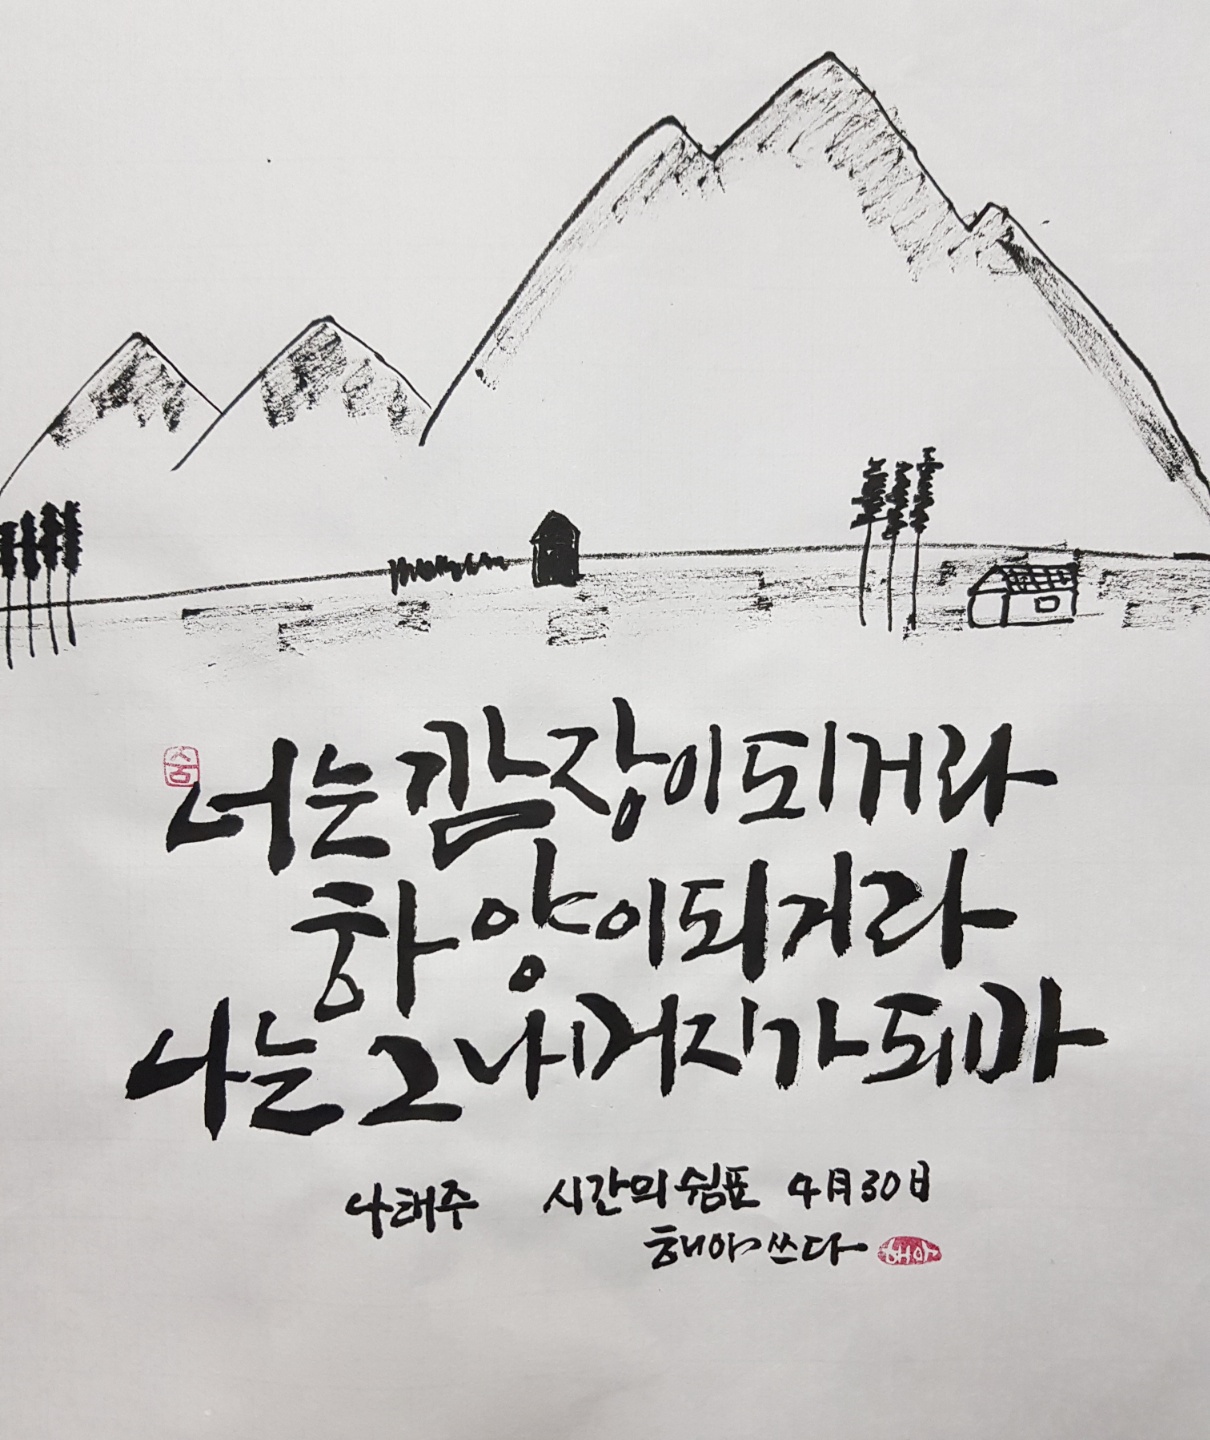 숨
너는 깜장이 되거라
하양이 되거라
나는 그 나머지가 되마
나태주 시간의 쉼표 4月30日
해아 쓰다 해아